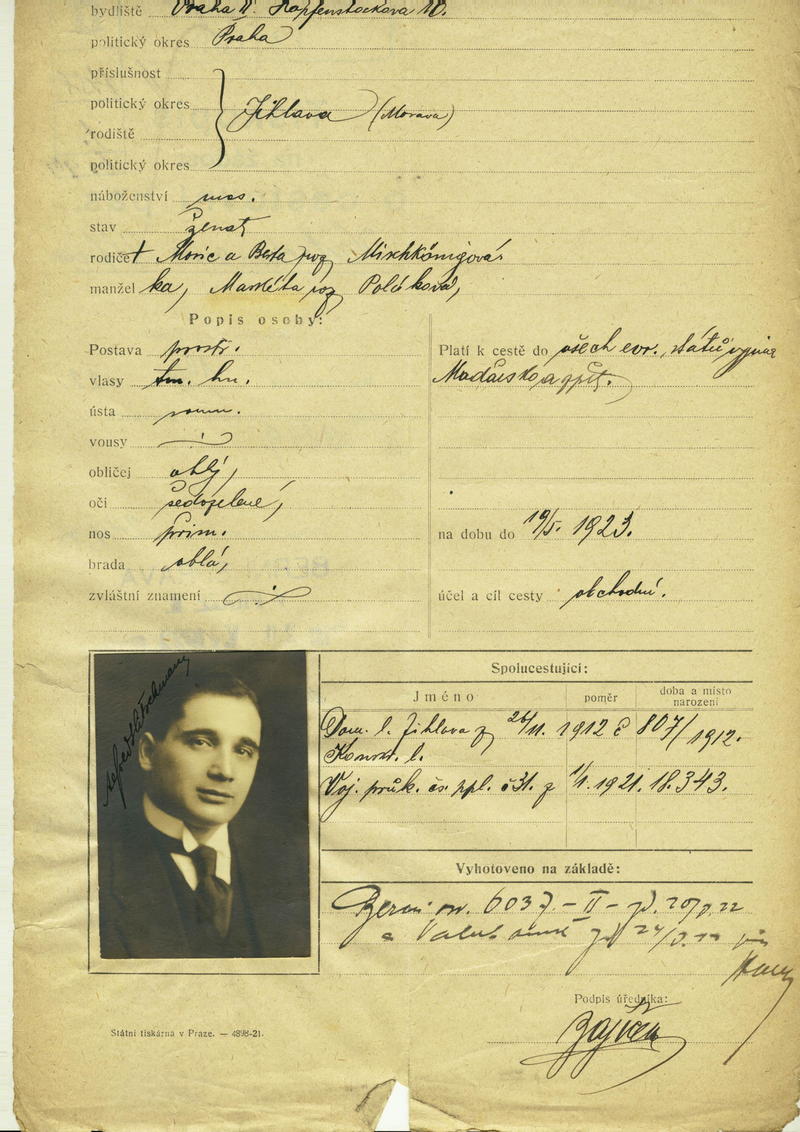 bydliště Praha II. Hopfenstockova 10.
politický okres Praha
příslušnost
politický okres
Jihlava (Morava)
rodiště
politický okres
náboženství mos.
stav ženat
rodiče † Moric a Berta roz Mischkönigová
manžel ka, Markéta roz Poláková,
Popis osoby:
Postava prostř.
vlasy tm. hn.
ústa soum.
vousy
obličej oblý,
oči šedozelené,
nos přim.
brada oblá,
zvláštní znamení
Platí k cestě do všech evr. států vyjma
Maďarsko a zpět.
na dobu do 19/5. 1923.
účel a cíl cesty obchodní.
Alfred
Spolucestující:
Jméno poměr doba a místo
narození
Dom. l. Jihlava z 26/11. 1912 č 807/1912.
Konskr. l.
Voj. průk. čs. ppl. č 31. z 1/1. 1921. 18.343.
Vyhotoveno na základě:
6037 - II -
a
Podpis úředníka:
Státní tiskárna v Praze. — 4898-21.